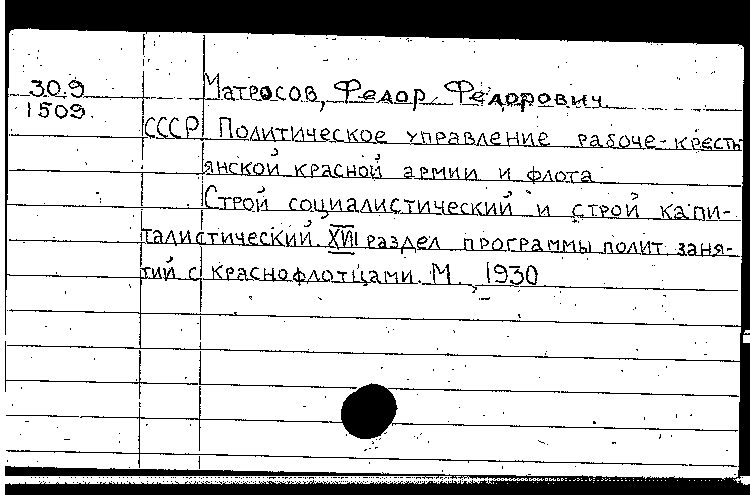 30.9 Матросов, Федор Федорович
1509
СССР Политическое управление рабоче-кресть
янской красной армии и флота
Строй социалистический и строй капи-
талистический. XVII раздел программы полит. заня-
тий с краснофлотцами. М., 1930